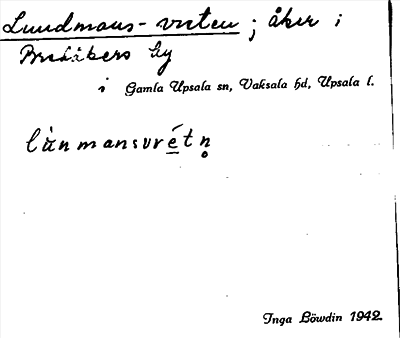 Lundmans-vreten; åker i
Bredåkers by
i Gamla Upsala sn, Vaksala hd, Upsala l.
lùnmansvrétn̥
Inga Löwdin 1942.